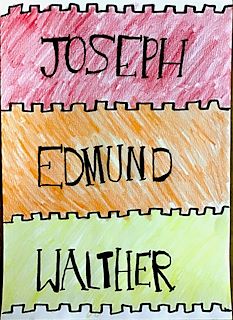 JOSEPH
EDMUND
WALTHER